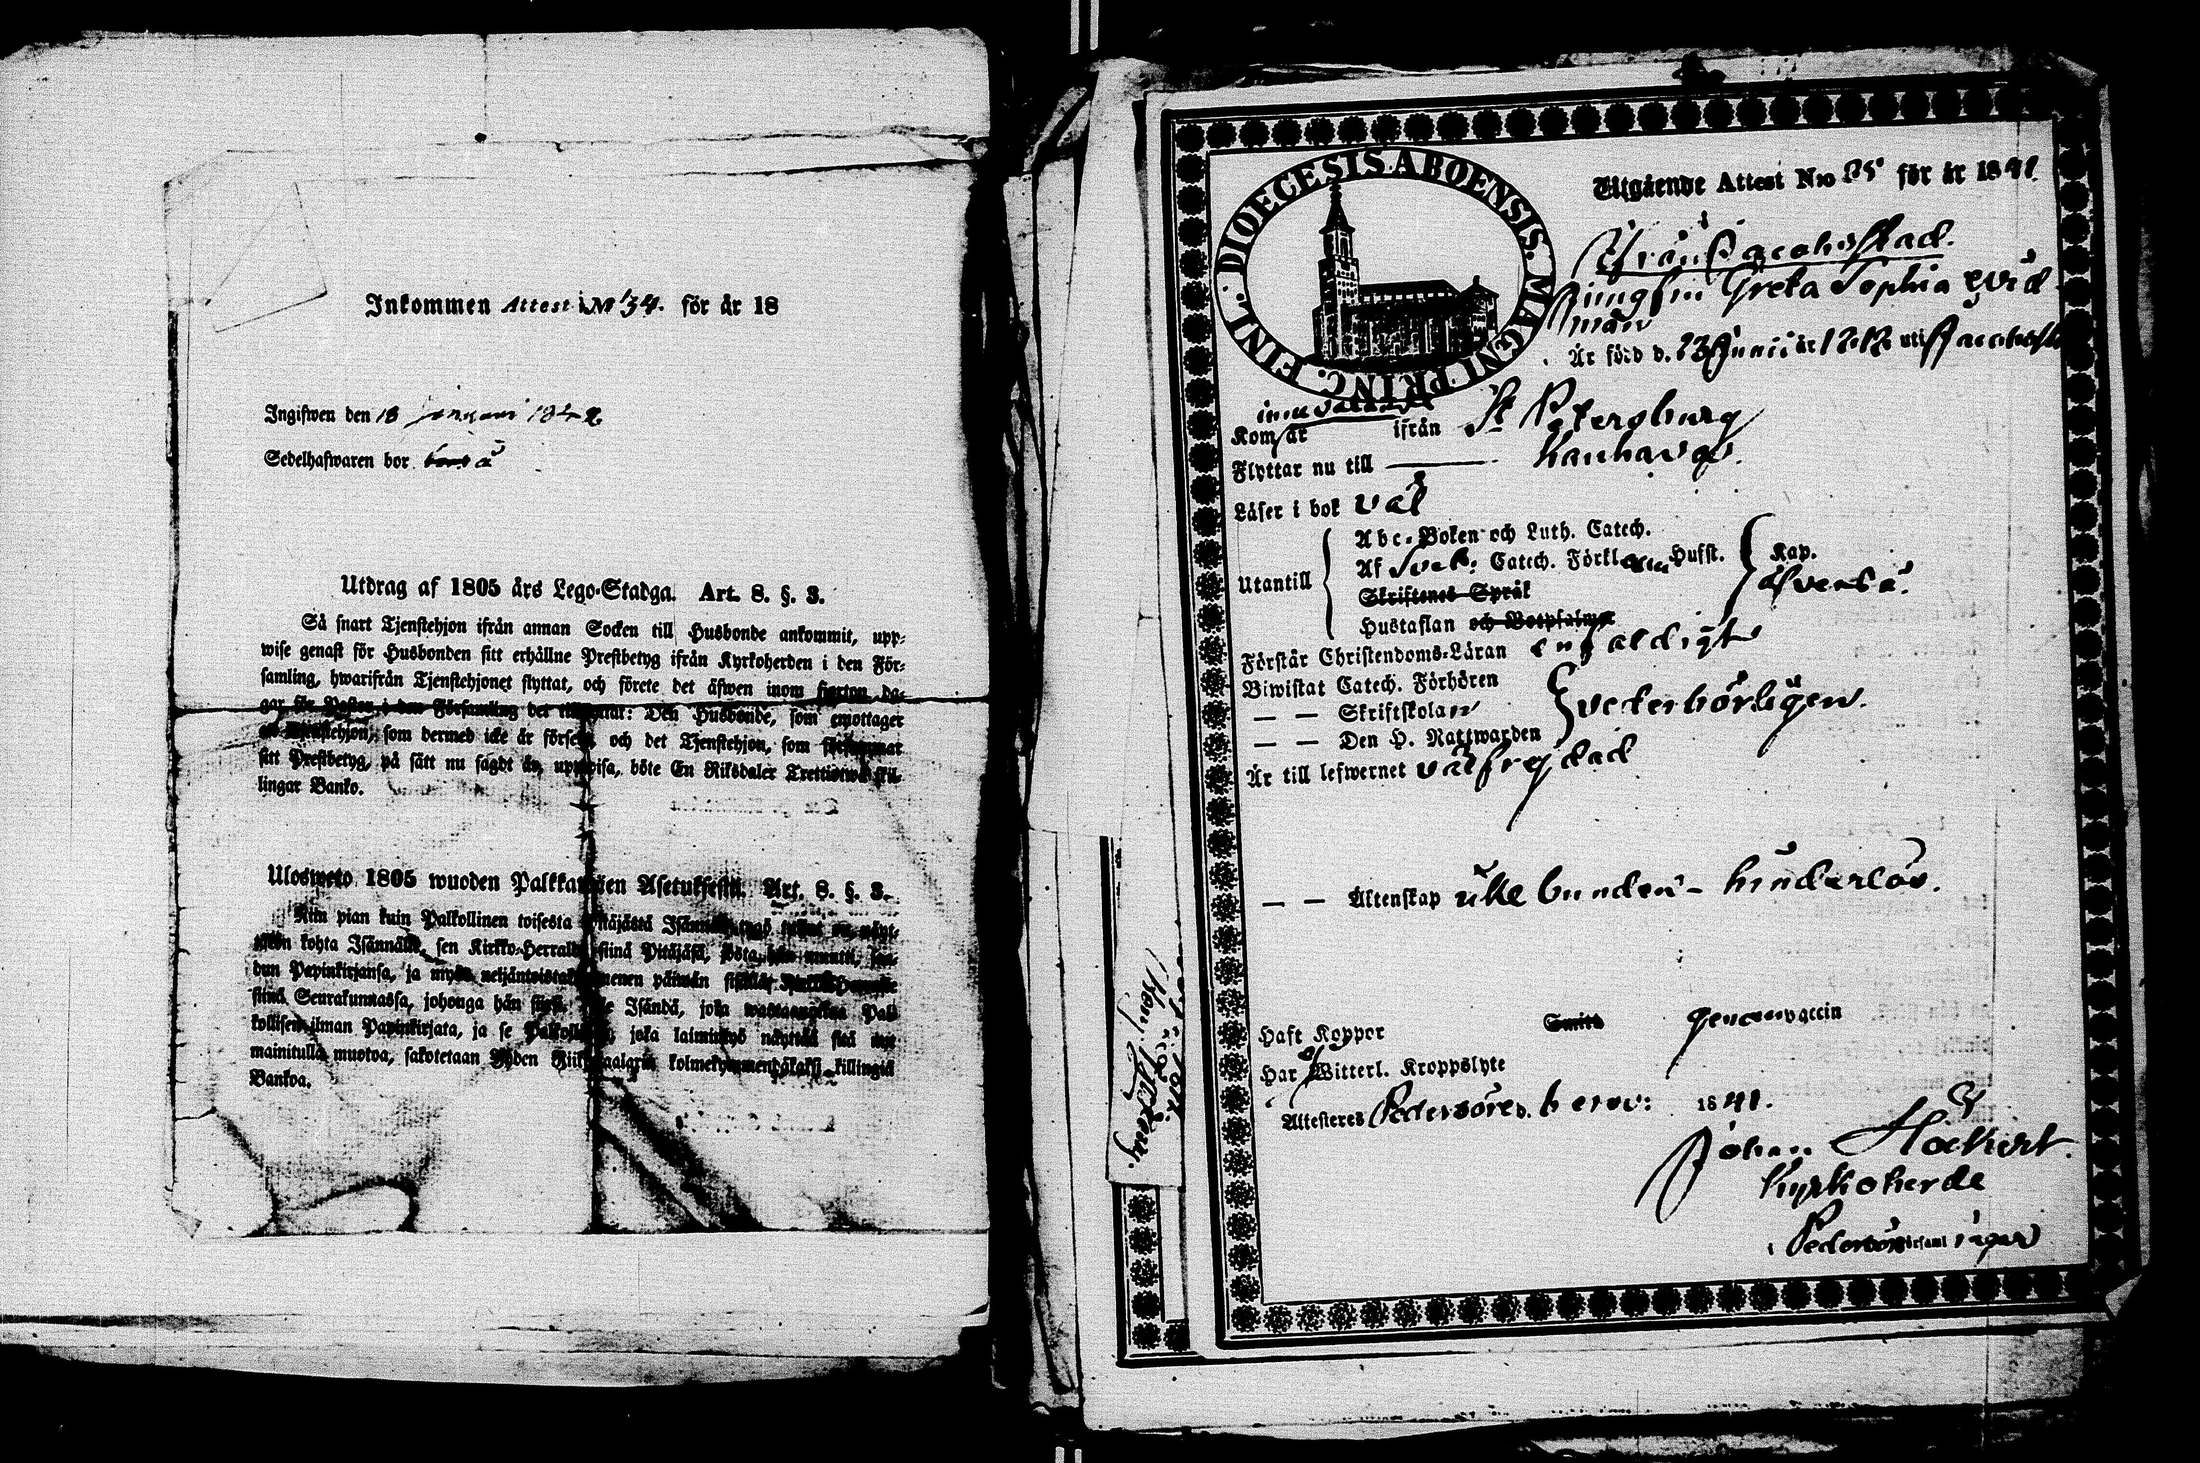 Inkommen Attest № 34. för år 18
Ingifwen den 18 januari 1842
Sedelhafwaren bor
Utdrag af 1805 års Lego-Stadga. Art. 8. §. 3.
Så snart Tjenstehjon ifrån annan Socken till Husbonde ankommit, upp-
wise genast för Husbonden sitt erhållne Prestbetyg ifrån Kyrkoherden i den För-
samling, hwarifrån Tjenstehjonet flyttat, och förete det äfwen inom fjorton da-
gar för Pastor i den Församling det tillflyttat: Den Husbonde, som emottager
ett Tjenstehjon, som dermed icke är försedt, och det Tjenstehjon, som försummat
sitt Prestbetyg, på sätt nu sagdt är, uppwisa, böte En Riksdaler Trettiotwå skil-
lingar Banko.
Ulosweto 1805 wuoden Palkkawäen Asetuksesta. Art. 8. §. 3.
Niin pian kuin Palkollinen toisesta Pitäjästä Isännän tygö
kohta Isännälle, sen Kirkko-Herralta siinä Pitäjäsä, kosta hän muutti, saa-
dun Papinkirjansa, ja myös neljäntoistakymmenen päiwän sisällä
siinä Seurakunnassa, johonga hän Isändä, joka wastaanottaa Pal-
kollisen ilman Papinkirjata, ja se Palkollinen, joka laiminlyö näyttää sitä nyt
mainitulla muotoa, sakotetaan Yhden Riiksdaalarin kolmekymmentäkaksi killingiä
Bankoa.
DIOECESIS ABOENSIS. MAGNI PRINC. FINL.
Utgående Attest N:o 85 för år 1841
Ifrån Jacobstad.
Jungfru Greta Sophia
man
Är född d. 23 Junii år 1818 uti Jacobst
Kom år ifrån St Petersburg
Flyttar nu till Kauhava.
Läser i bok väl
Utantill
Abc-Boken och Luth. Catech.
Af Sveb: Catech. Förkl Hufst.
Skriftenes Språk
Hustaflan och Botpsalmer
Kap.
öfversä.
Förstår Christendoms-Läran enfaldigt
Biwistat Catech. Förhören
— — Skriftskolan
— — Den H. Nattwarden
vederbörligen.
Är till lefwernet välfrejdad
— — Äktenskap icke bunden - hinderlös.
Haft Koppor Smitt genom vaccin
Har ej Witterl. Kroppslyte
Attesteras Pedersöre d. 6 1841.
Johan Höckert.
Kyrkoherde
i Pedersöre församl ingar